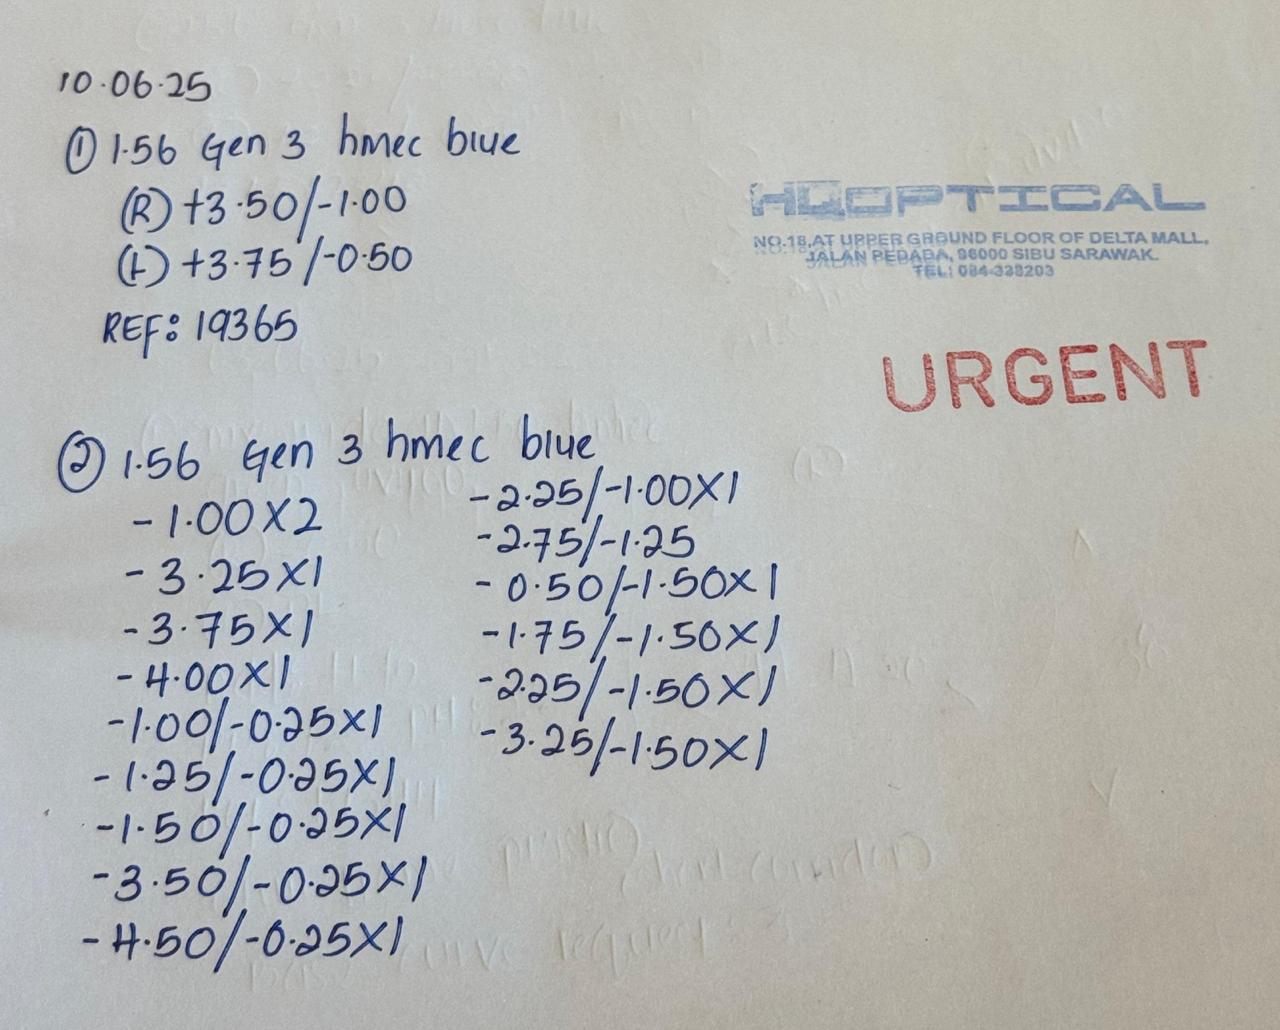 10.06.25
① 1.56 Gen 3 hmec blue
(R) +3.50/-1.00
(L) +3.75/-0.50
REF: 19365
HQOPTICAL
NO.18,AT UPPER GROUND FLOOR OF DELTA MALL,
JALAN PEDADA, 96000 SIBU SARAWAK.
TEL: 084-338203
URGENT
② 1.56 Gen 3 hmec blue
-1.00X2
-3.25X1
-3.75X1
-4.00X1
-1.00/-0.25X1
-1.25/-0.25X1
-1.50/-0.25X1
-3.50/-0.25X1
-4.50/-0.25X1
-2.25/-1.00X1
-2.75/-1.25
-0.50/-1.50X1
-1.75/-1.50X1
-2.25/-1.50X1
-3.25/-1.50X1